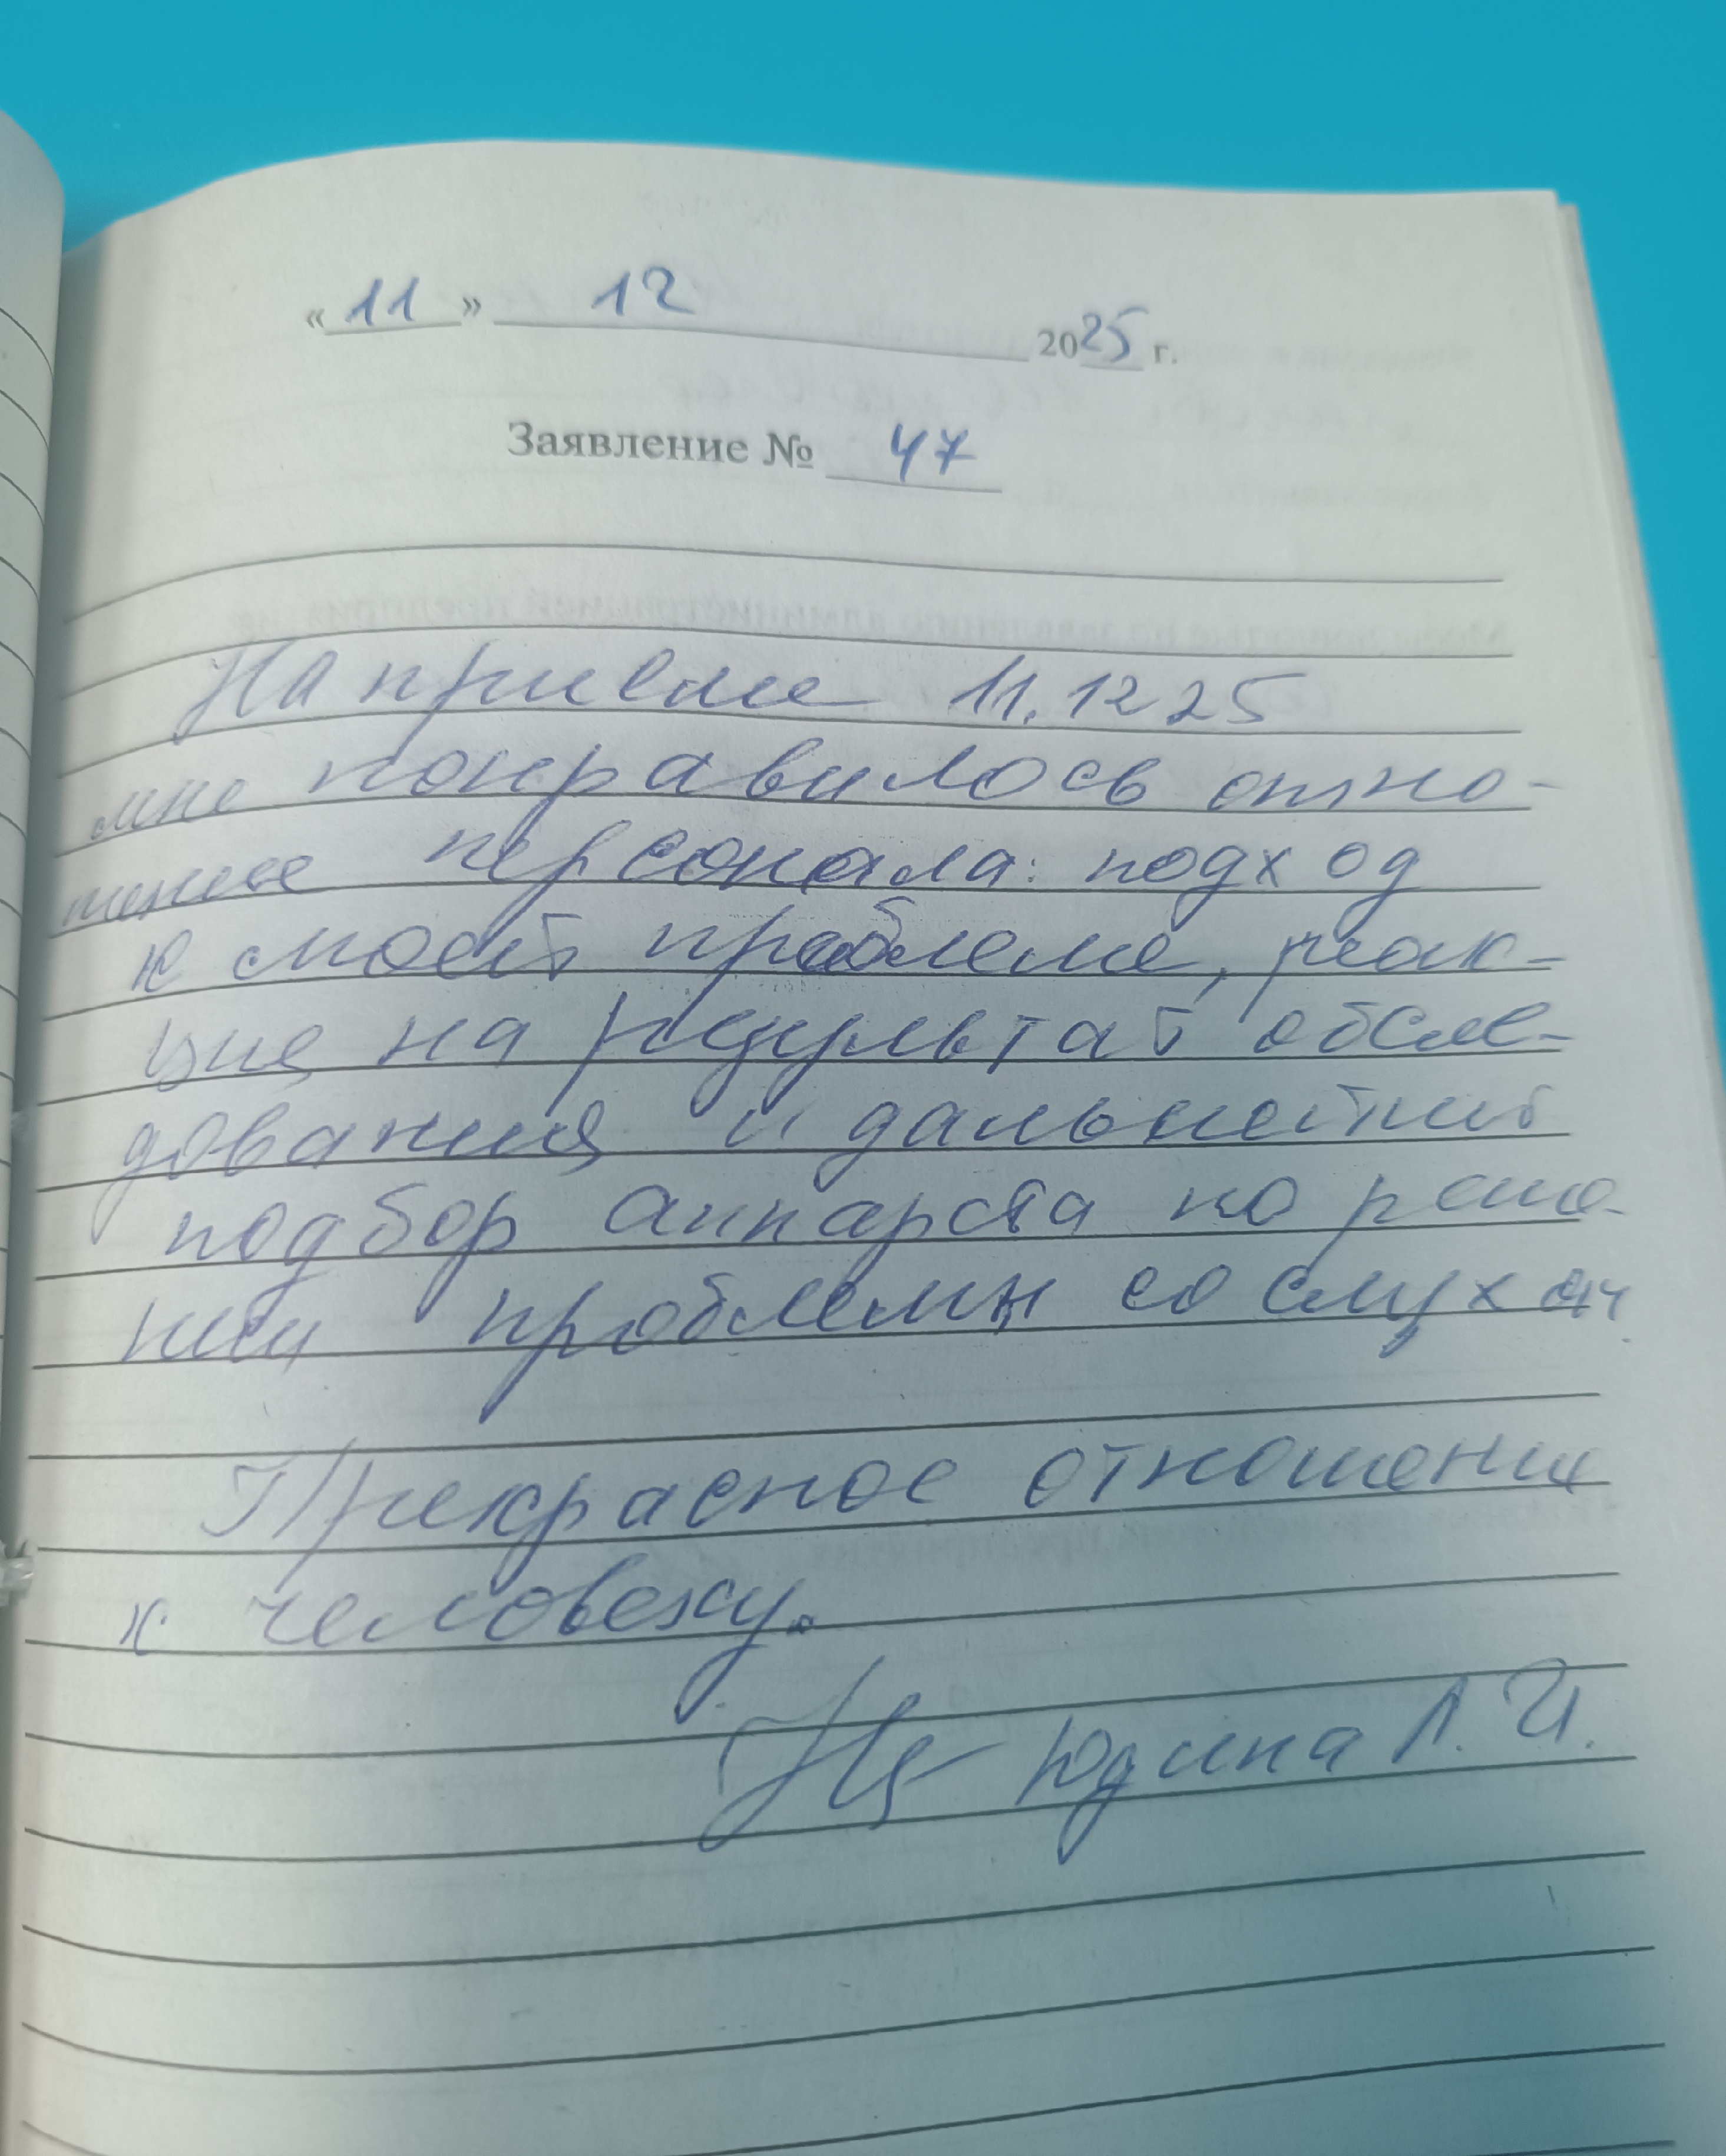 « 11 » 12 2025 г.
Заявление № 47
На приеме 11.12 25
мне понравилось отно-
шение персонала: подход
к моей проблеме, реак-
ция на результат обсле-
дования и дальнейший
подбор аппарата по реше-
нии проблемы со слухом.
Прекрасное отношение
к человеку.
Юдина Л. И.